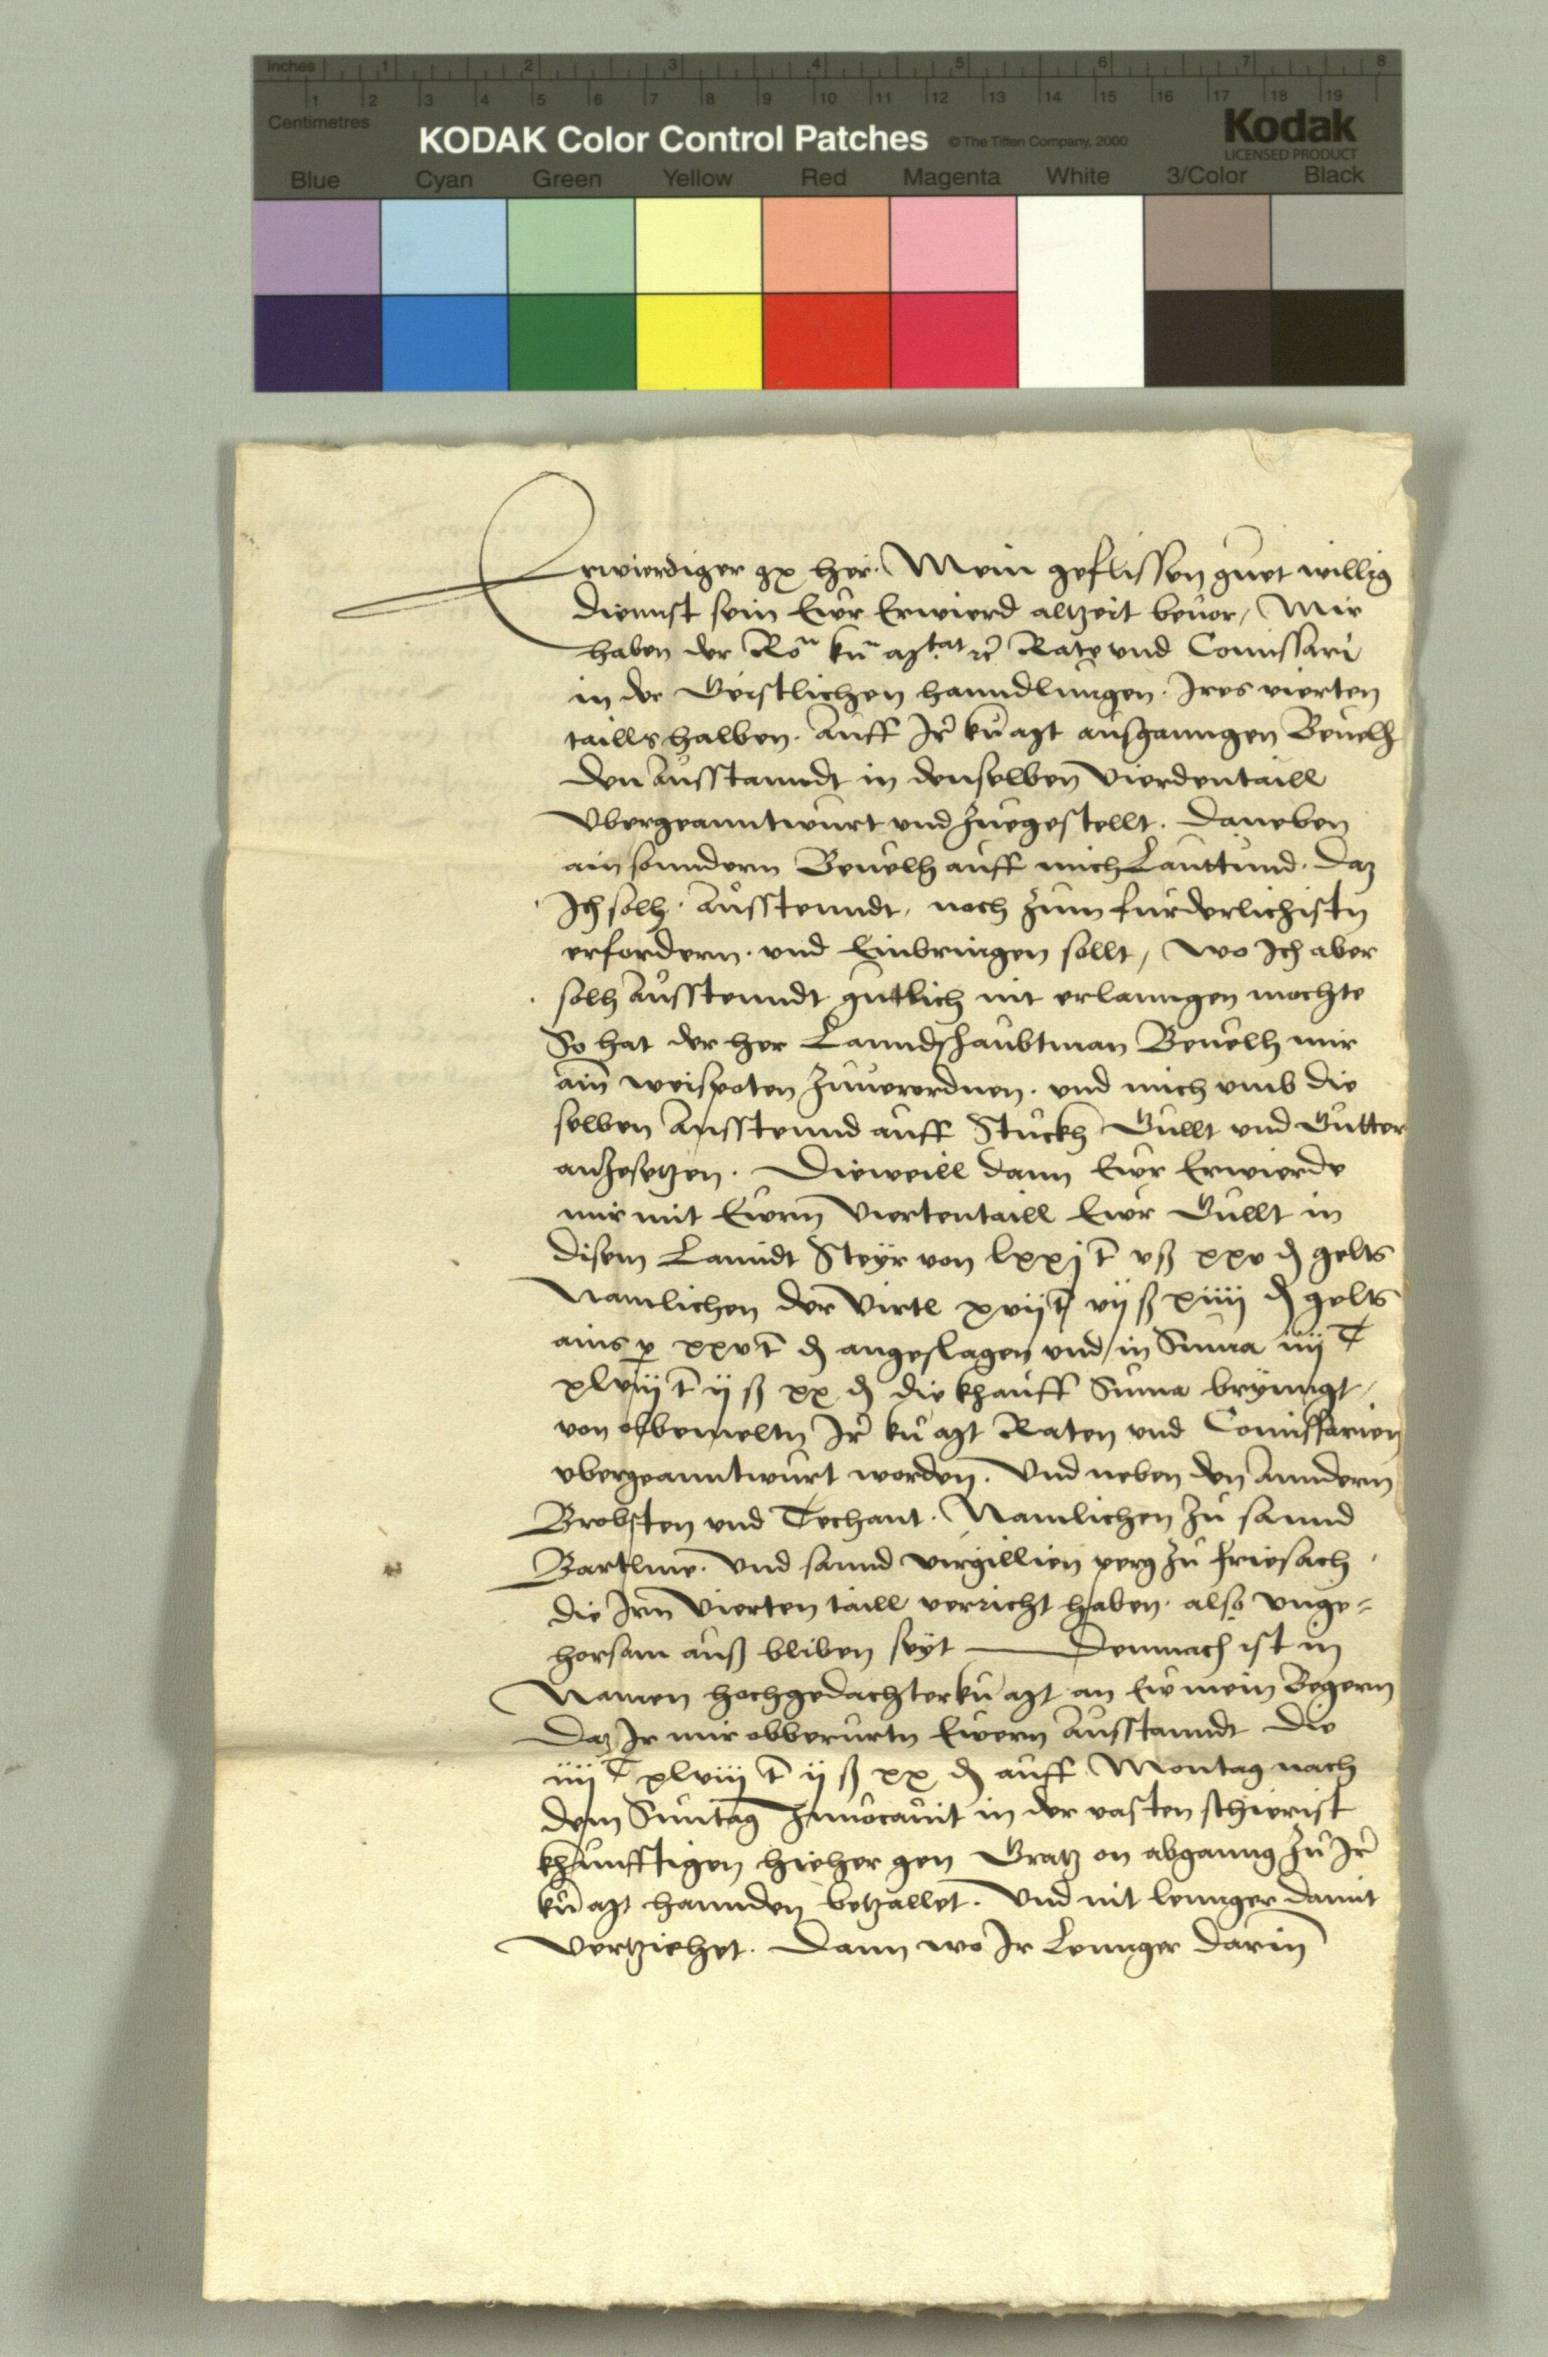 Inches 1 2 3 4 5 6 7 8
1 2 3 4 5 6 7 8 9 10 11 12 13 14 15 16 17 18 19
Centimetres
KODAK Color Control Patches © The Tiffen Company, 2000
Kodak
LICENSED PRODUCT
Blue Cyan Green Yellow Red Magenta White 3/Color Black
Erwierdiger her. Mein geflissen guet willig
Diennst sein Ewr Erwierd altzeit beuor, Mir
haben der Ro ku Rate vnd Comissari
in der Geistlichen hanndlungen. Ires vierten
taills halben. Auff Ir ku mt ausganngen Beuelh
den Ausstanndt in denselben Vierdentaill
Vbergeanntwurt vnd zuegestellt. Daneben
ain sonndern Beuelh auff mich Lauttund. Daz
Ich solh. Ausstenndt, noch zum furderlichistn
erfordern. vnd Einbringen sollt, Wo Ich aber
solh Ausstenndt gutlich nit erlanngen mochte
So hat der her Lanndshaubtman Beuelh mir
ain weispoten zuuerordnen. vnd mich vmb die
selben Ausstennd auff Stuckh Gullt vnd Gutter
anzesetzen. Dieweill dann Ewr Erwierde
mir mit Ewrm Viertentaill Ewr Gullt in
disem Lanndt Steyr von lxxj t vß xxv ₰ gelts
Namlichen der Virtl xvij t vij ß xiiij ₰ gelts
ains p xxv t ₰ angeslagen vnd in Suma iiij C
xlviij t ij ß xx ₰ die khauff Suma brynngt,
von obbemeltn Ir ku mt Raten vnd Comissarien
vbergeanntwurt worden. Vnd neben den Anndern
Brobsten vnd Techant. Namlichen zu sannd
Bartlme. Vnd sannd virgillien perg zu friesach,
die Irn Vierten taill verricht haben. also vnge=
horsam auß bliben seyt — Demnach ist in
Namen hochgedachter ku mt an Ew mein Begern
Daz Ir mir obberurtn Ewern Ausstanndt die
iiij C xlviij t ij ß xx ₰ auff Montag nach
dem Suntag Inuocauit in der vasten schierist
khunfftigen hieher gen Gratz on abganng zu Ir
ku mt hannden betzallet. Vnd nit lennger damit
Vertziehet. Dann wo Ir Lennger darin